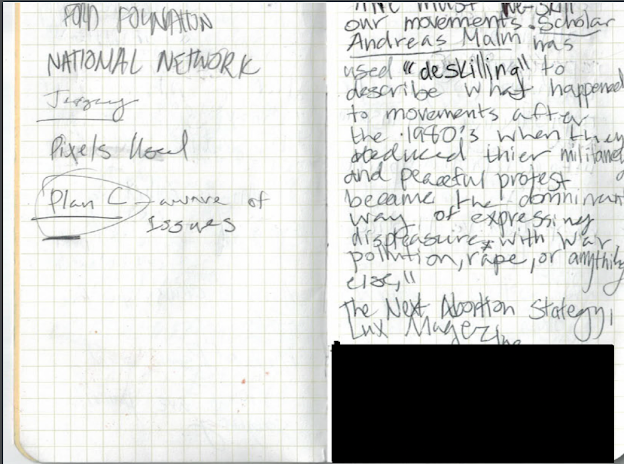 FORD FOUNDATION
NATIONAL NETWORK
Jersey
Pixels Used
Plan C - aware of
issues
must re-skill
our movements. Scholar
Andreas Malm has
used "deskilling" to
describe what happened
to movements after
the 1980's when they
reduced thier
and peaceful protest
became the domninant
way of expressing
displeasure with war
pollution, rape, or anything
else,"
The Next Abortion Stategy,
Lux Magezine